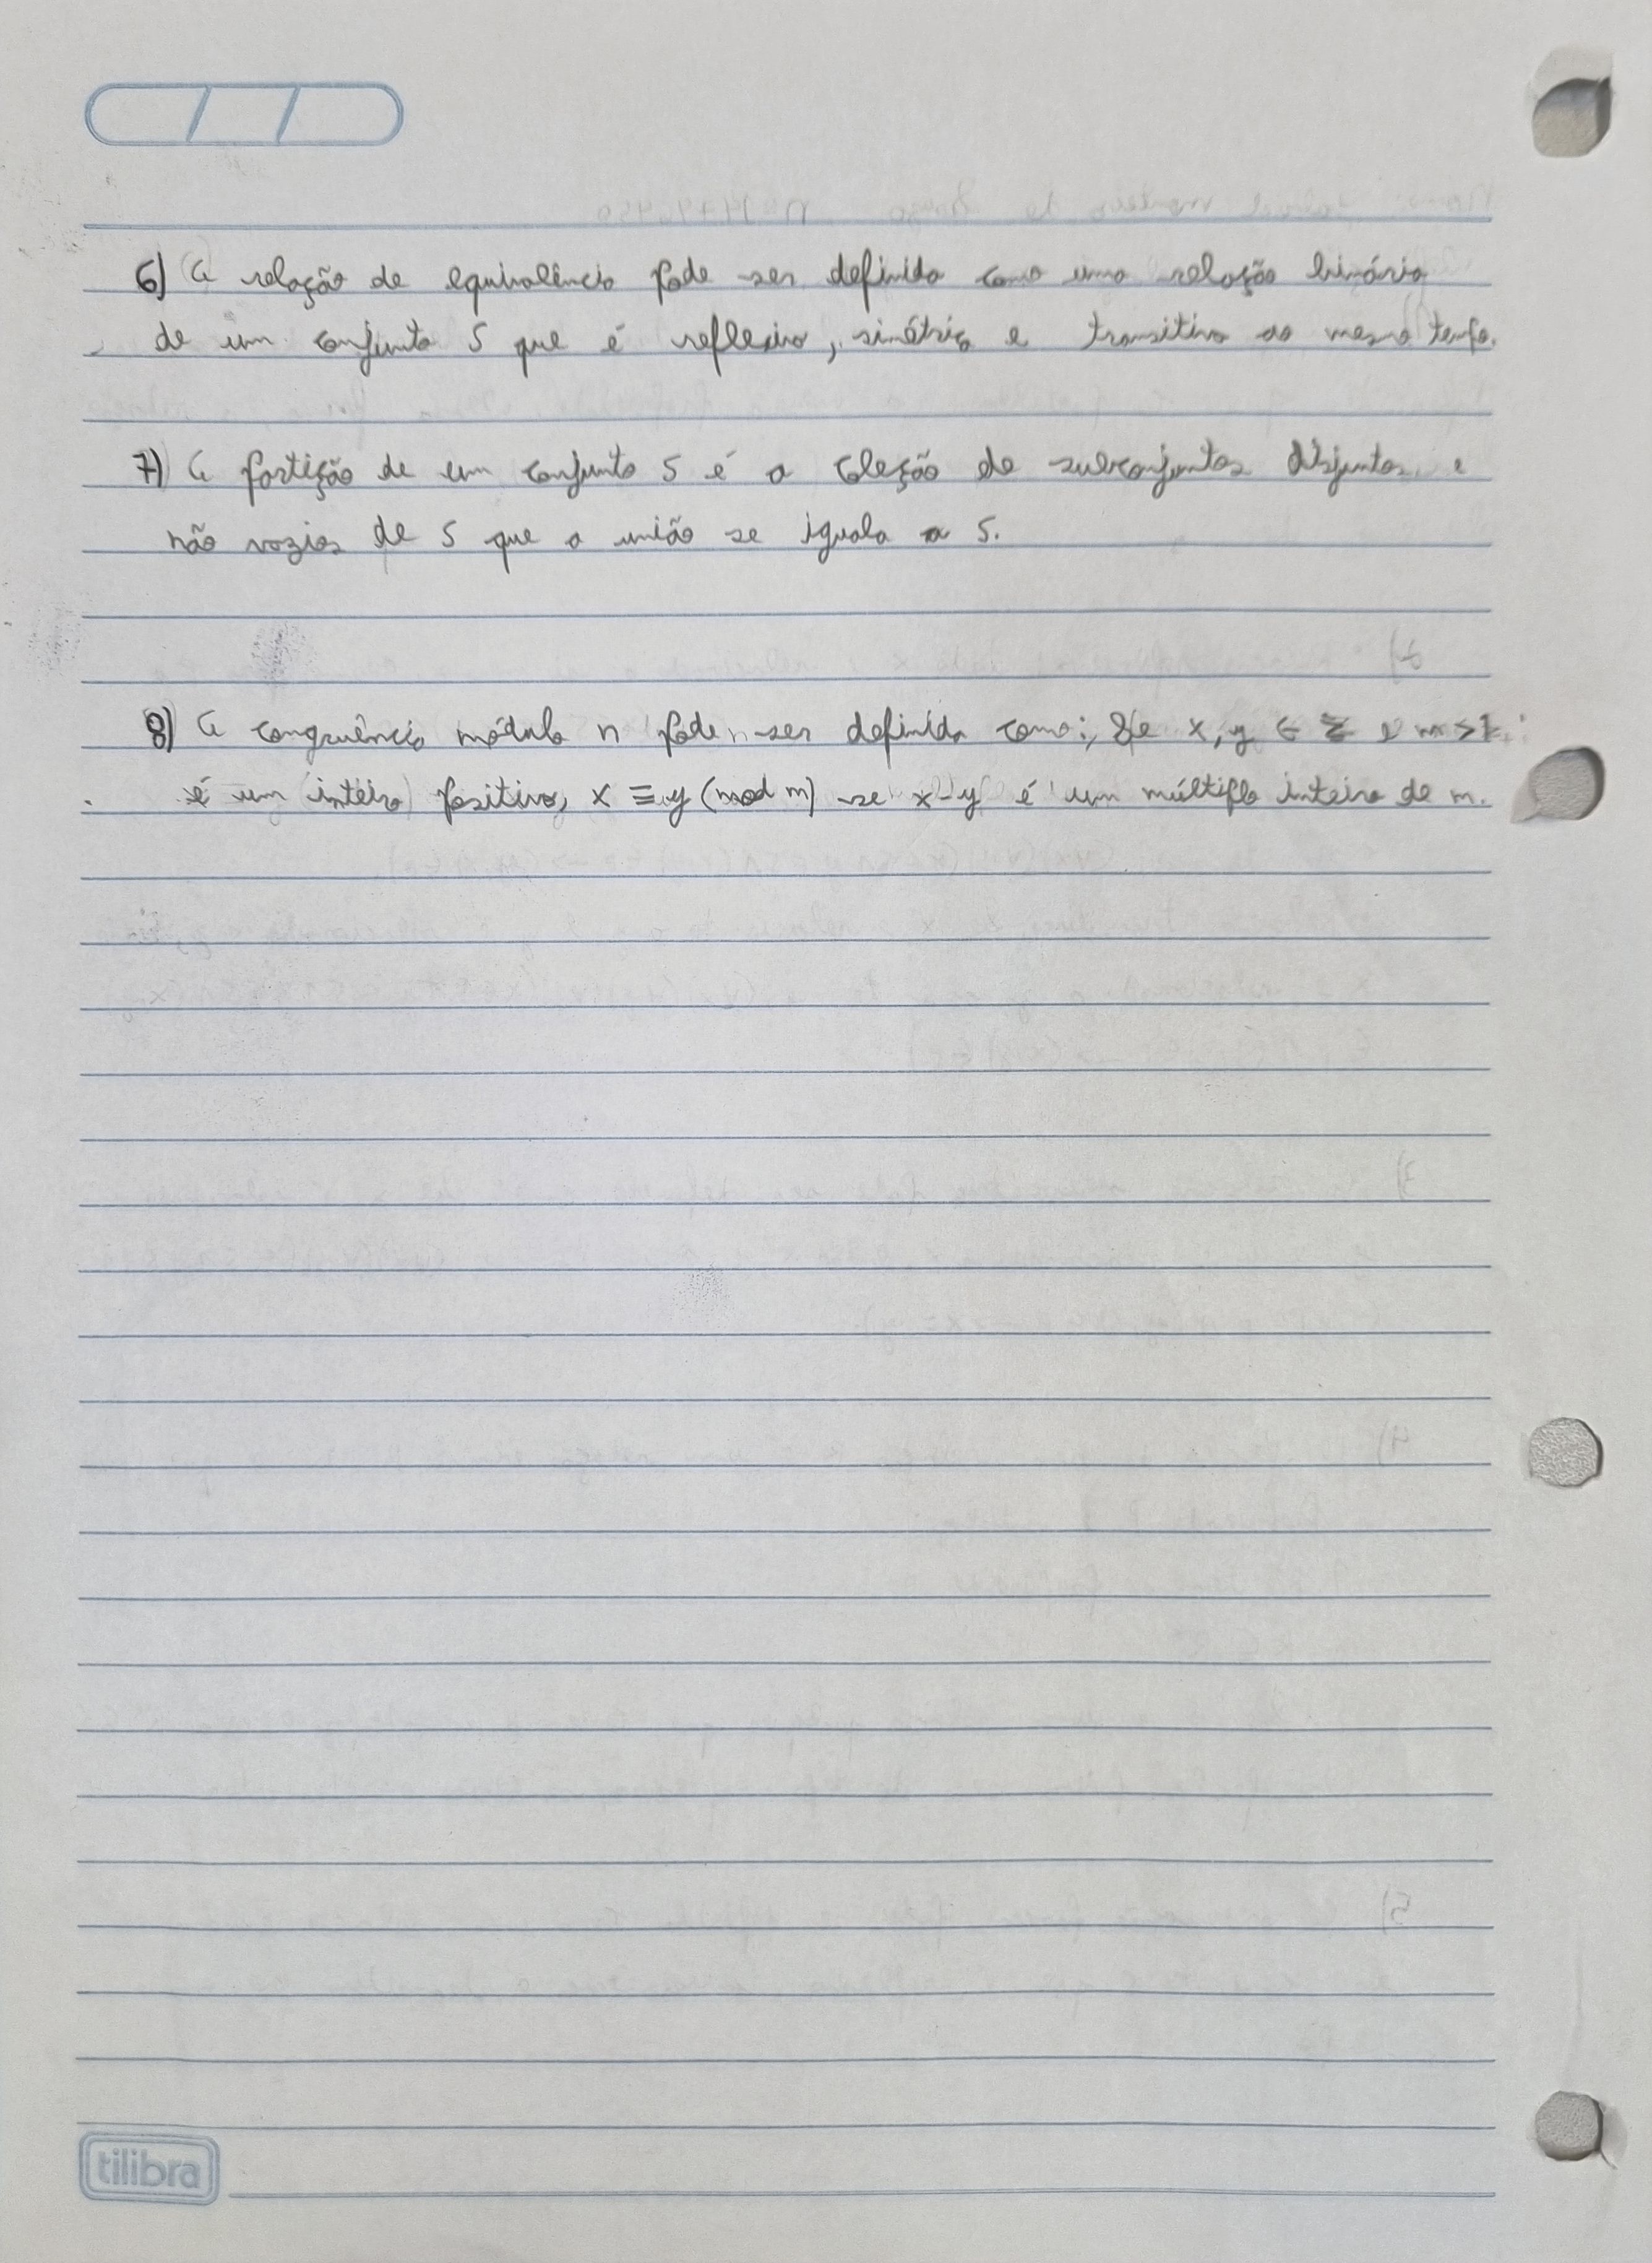 6) A relação de equivalência pode ser definida como uma relação binária
de um conjunto S que é reflexiva, simétrica e transitiva ao mesmo tempo.
7) A partição de um conjunto S é a coleção de subconjuntos disjuntos e
não vazios de S que a união se iguala a S.
8) A congruência módulo n pode ser definida como: Se x, y ∈ Z e m > 1
é um inteiro positivo, x ≡ y (mod m) se x - y é um múltiplo inteiro de m.
tilibra